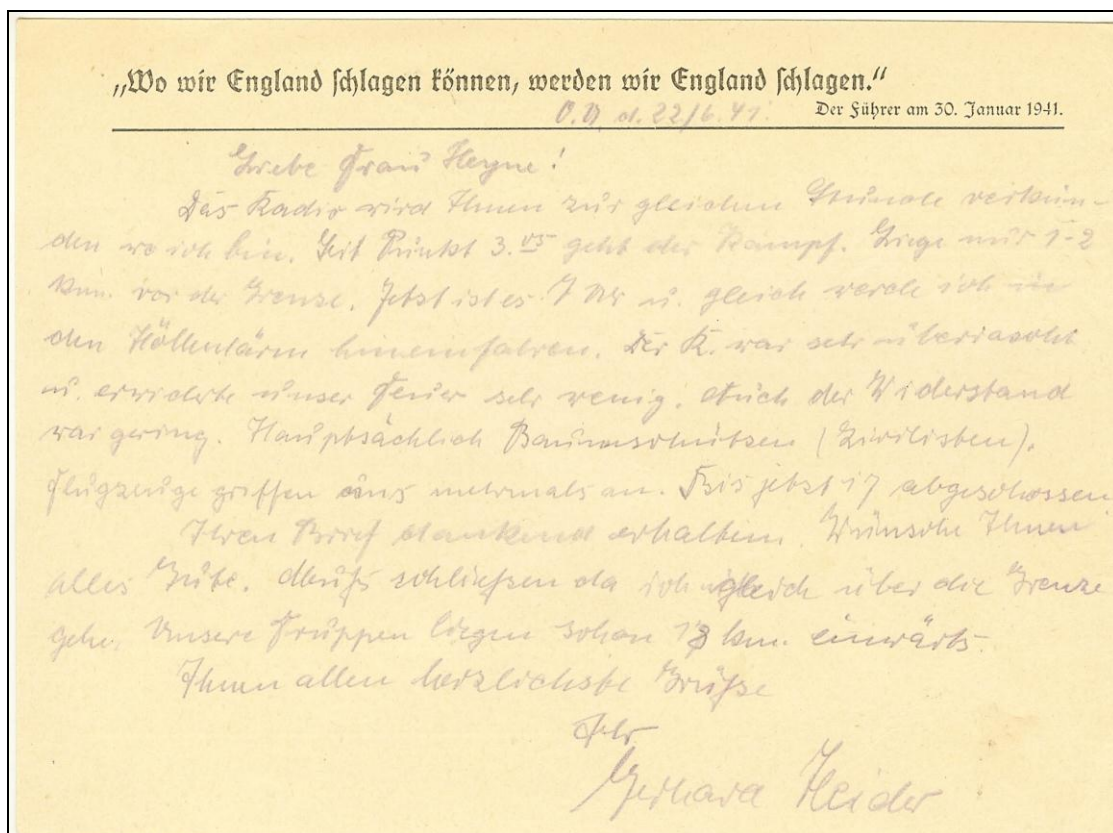 „Wo wir England schlagen können, werden wir England schlagen.“
O.U. d. 22/6.41.
Der Führer am 30. Januar 1941.
Liebe Frau Heyne!
Das Radio wird Ihnen zur gleichen Stunde verkün-
den wo ich bin. Seit Punkt 3.05 geht der Kampf. Liege nur 1-2
km. vor der Grenze. Jetzt ist es 7 Uhr u. gleich werde ich in
den Höllenlärm hineinfahren. Der R. war sehr überrascht
u. erwiderte unser Feuer sehr wenig. Auch der Widerstand
war gering. Hauptsächlich Baumschützen (Zivilisten).
Flugzeuge griffen uns mehrmals an. Bis jetzt 17 abgeschossen
Ihren Brief dankend erhalten. Wünsche Ihnen
alles Gute. Muß schließen da ich gleich über die Grenze
gehe. Unsere Truppen liegen schon km. einwärts.
Ihnen allen herzlichste Grüße
Ihr
Gerhard Heider